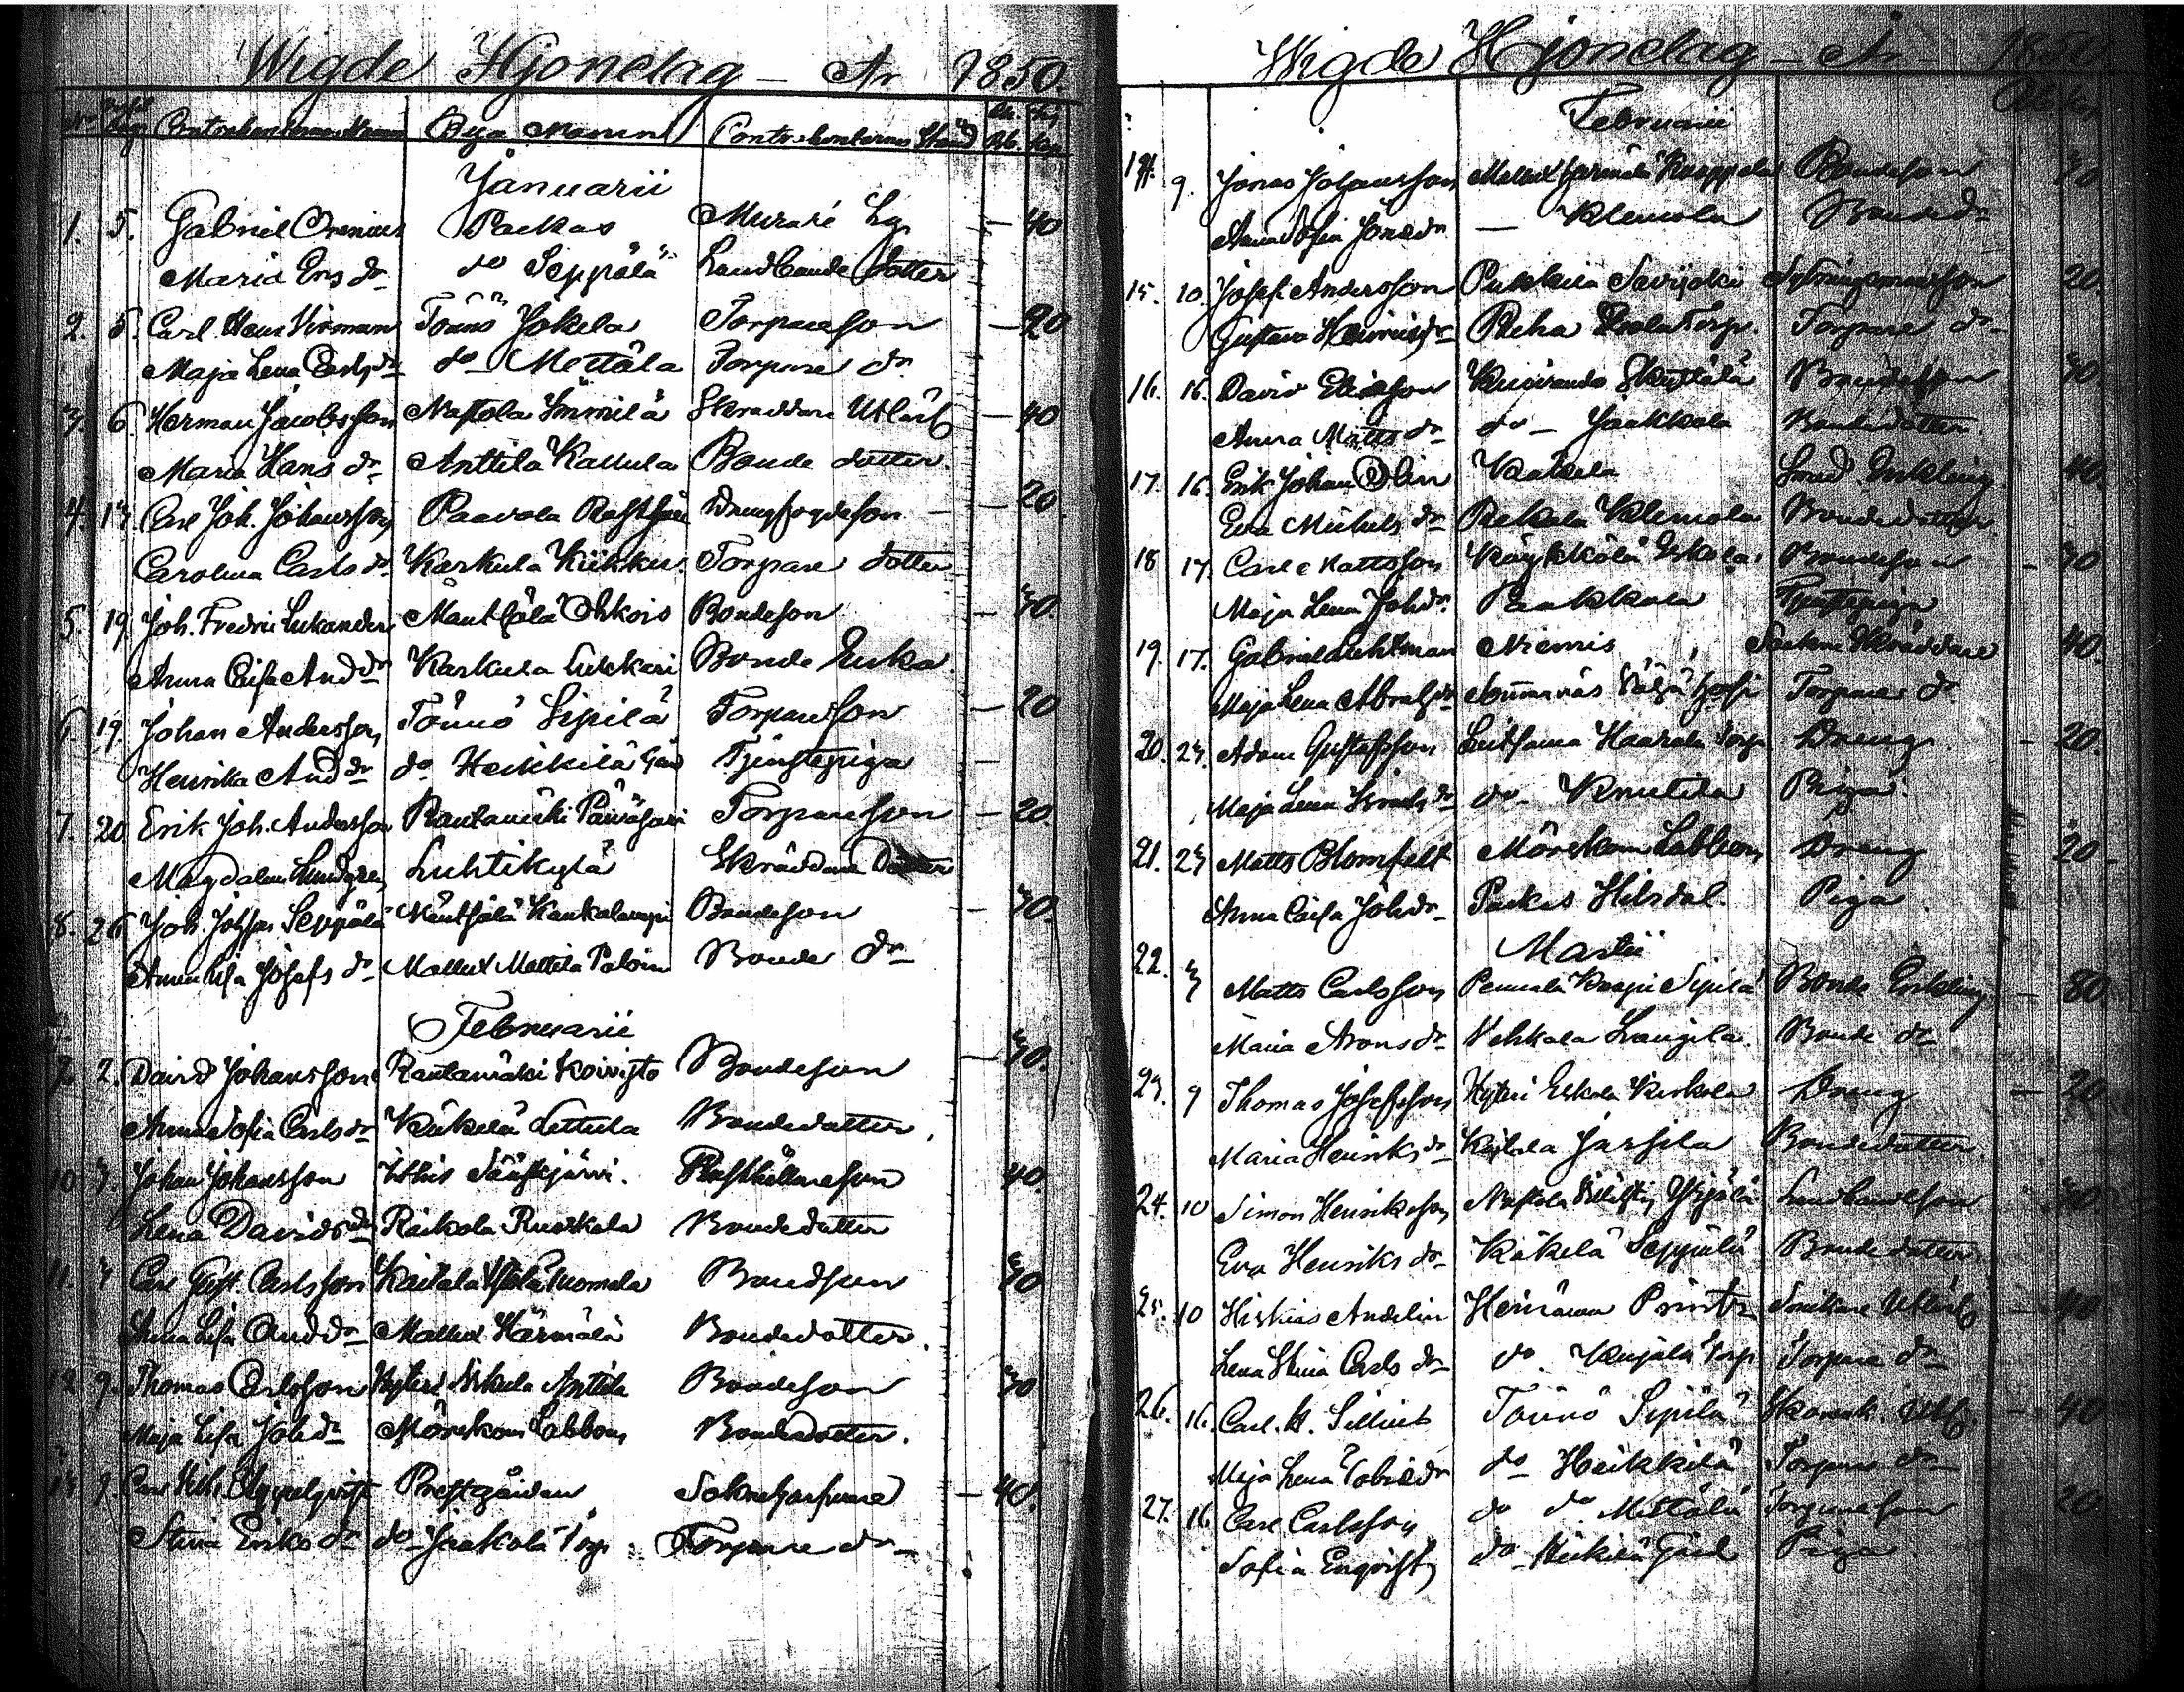 Wigde Hjonelag – År 1850.
Contrahenternas Namn Bya Namn Contrahenternas Stånd Rb. Kop.
Januarii
1. 5. Gabriel Orenius Packas Murare Lg. – 40
Maria Ers dr do Seppälä Landbonde Dotter
2. 5. Carl Henr Tönnö Jokela Torpareson – 20
Maja Lena Carls dr do Mettälä Torpare dr
3. 6. Herman Jacobsson Naftola Immilä Skräddare Utlärl – 40
Maria Hans dr Anttila Kallula Bonde dotter
4. 13. Carl Joh. Johansson Paavola Drengfogdeson – 20
Carolina Carls dr Karkula Kiikkus Torpare dotter
5. 19. Joh. Fredric Lukander Mäntsälä Ohkois Bondeson – 30.
Anna Caisa And dr Karkula Lukkari Bonde Enka
6. 19. Johan Andersson Tönnö Sipilä Torpareson – 20
Henrika And dr do Heikkilä Gård Tjenstepiga –
7. 20 Erik Joh. Andersson Rautamäki Torpareson – 20.
Magdalena Lindgren Luhtikylä Skräddare Dotter
8. 26 Joh. Johsson Seppälä Mäntsälä Kaukalampi Bondeson – 30.
Anna Lisa Josefs dr Mallux Mattila Bonde dr
Februarii
2. David Johansson Rautamäki Koivisto Bondeson – 30.
Anna Sofia Carls dr Käkelä Lettula Bondedotter.
10 3. Johan Johansson Sääksjärvi. Rusthållareson 40.
Lena Davids dr Raikola Ruokola Bondedotter
11. 7 Carl Gust. Carlsson Kaitala Tuomala Bondeson 30
Anna Lisa And dr Mallux Härmälä Bondedotter.
12 9. Thomas Carlsson Anttila Bondeson 30
Maja Lisa Joh dr Mörskom Labbom Bondedotter.
13 9 Prestgården – 40.
Stina Eriks dr do Jaakola Torp Torpare dr
Wigde Hjonelag – År 1850
Februarii
14. 9. Jonas Johansson Mallux Härmälä Kauppala Bondeson 30
Anna Sofia Jons dr – Klemola Bonde dr
15. 10. Josef Andersson Pukkila Savijoki 20.
Gustava Henrics dr Torp. Torpare dr
16. 16. David Eliasson Kuivando Skyttälä Bondeson 30
Anna Matts dr do – Jaakkola Bondedotter.
17. 16. Erik Johan Olin Käkelä Smed Enkling 40.
Eva Michels dr Rekola Klemola Bondedotter
18 17. Carl Mattsson Köylkölä Eskola Bondeson – 30
Maja Lena Joh dr. Pankkala Tjenstepiga
19. 17. Gabriel Lehtman Niemis Sockne Skräddare 40.
Maja Lena Abrahs dr Torpare dr
20. 23. Adam Gustafsson Haarala Torp Dreng – 20.
Maja Lena do Knutila Piga.
21. 23 Matts Blomfelt Mörskom Labbom Dreng 20
Anna Caisa Joh dr Packas Hilsdal. Piga
Martii
22. 3 Matts Carlsson Pennala Sipilä Bonde Enkling – 80.
Maria Arons dr Vehkala Bonde dr
23. 9 Thomas Josefsson Eskola Dreng – 20
Maria Henriks dr Jussila Bondedotter.
24. 10 Simon Henriksson Naftola Yrjölä Landbondeson 30.
Eva Henriks dr Käkelä Seppälä Bondedotter
25. 10 Hiskias Andelin Heinämaa Utlärl – 40
Lena Stina Carls dr do. Kujala Torp Torpare dr
26. 16. Carl. H. Tönnö Sipilä – 40
Maja Lena Tobias dr do Heikkilä Torpare dr
27. 16. Carl Carlsson do do Mettälä Torpareson 20.
Sofia Enqvist do Heikilä Gård Piga